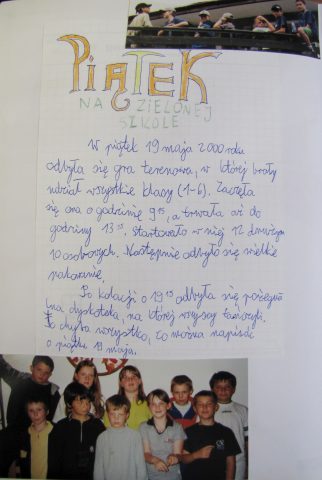 PIĄTEK
NA ZIELONEJ
SZKOLE
W piątek 19 maja 2000 roku
odbyła się gra terenowa, w której brały
udział wszystkie klasy (1-6). Zaczęła
się ona o godzinie 9¹⁵, a trwała aż do
godziny 13¹⁵. Startowało w niej 12 drużyn
10 osobowych. Następnie odbyło się wielkie
pakowanie.
Po kolacji o 19¹⁵ odbyła się pożegnal
na dyskoteka, na której wszyscy tańczyli.
To chyba wszystko, co można napisać
o piątku 19 maja.